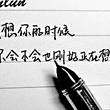 想你的时候
会不会也刚好正在想